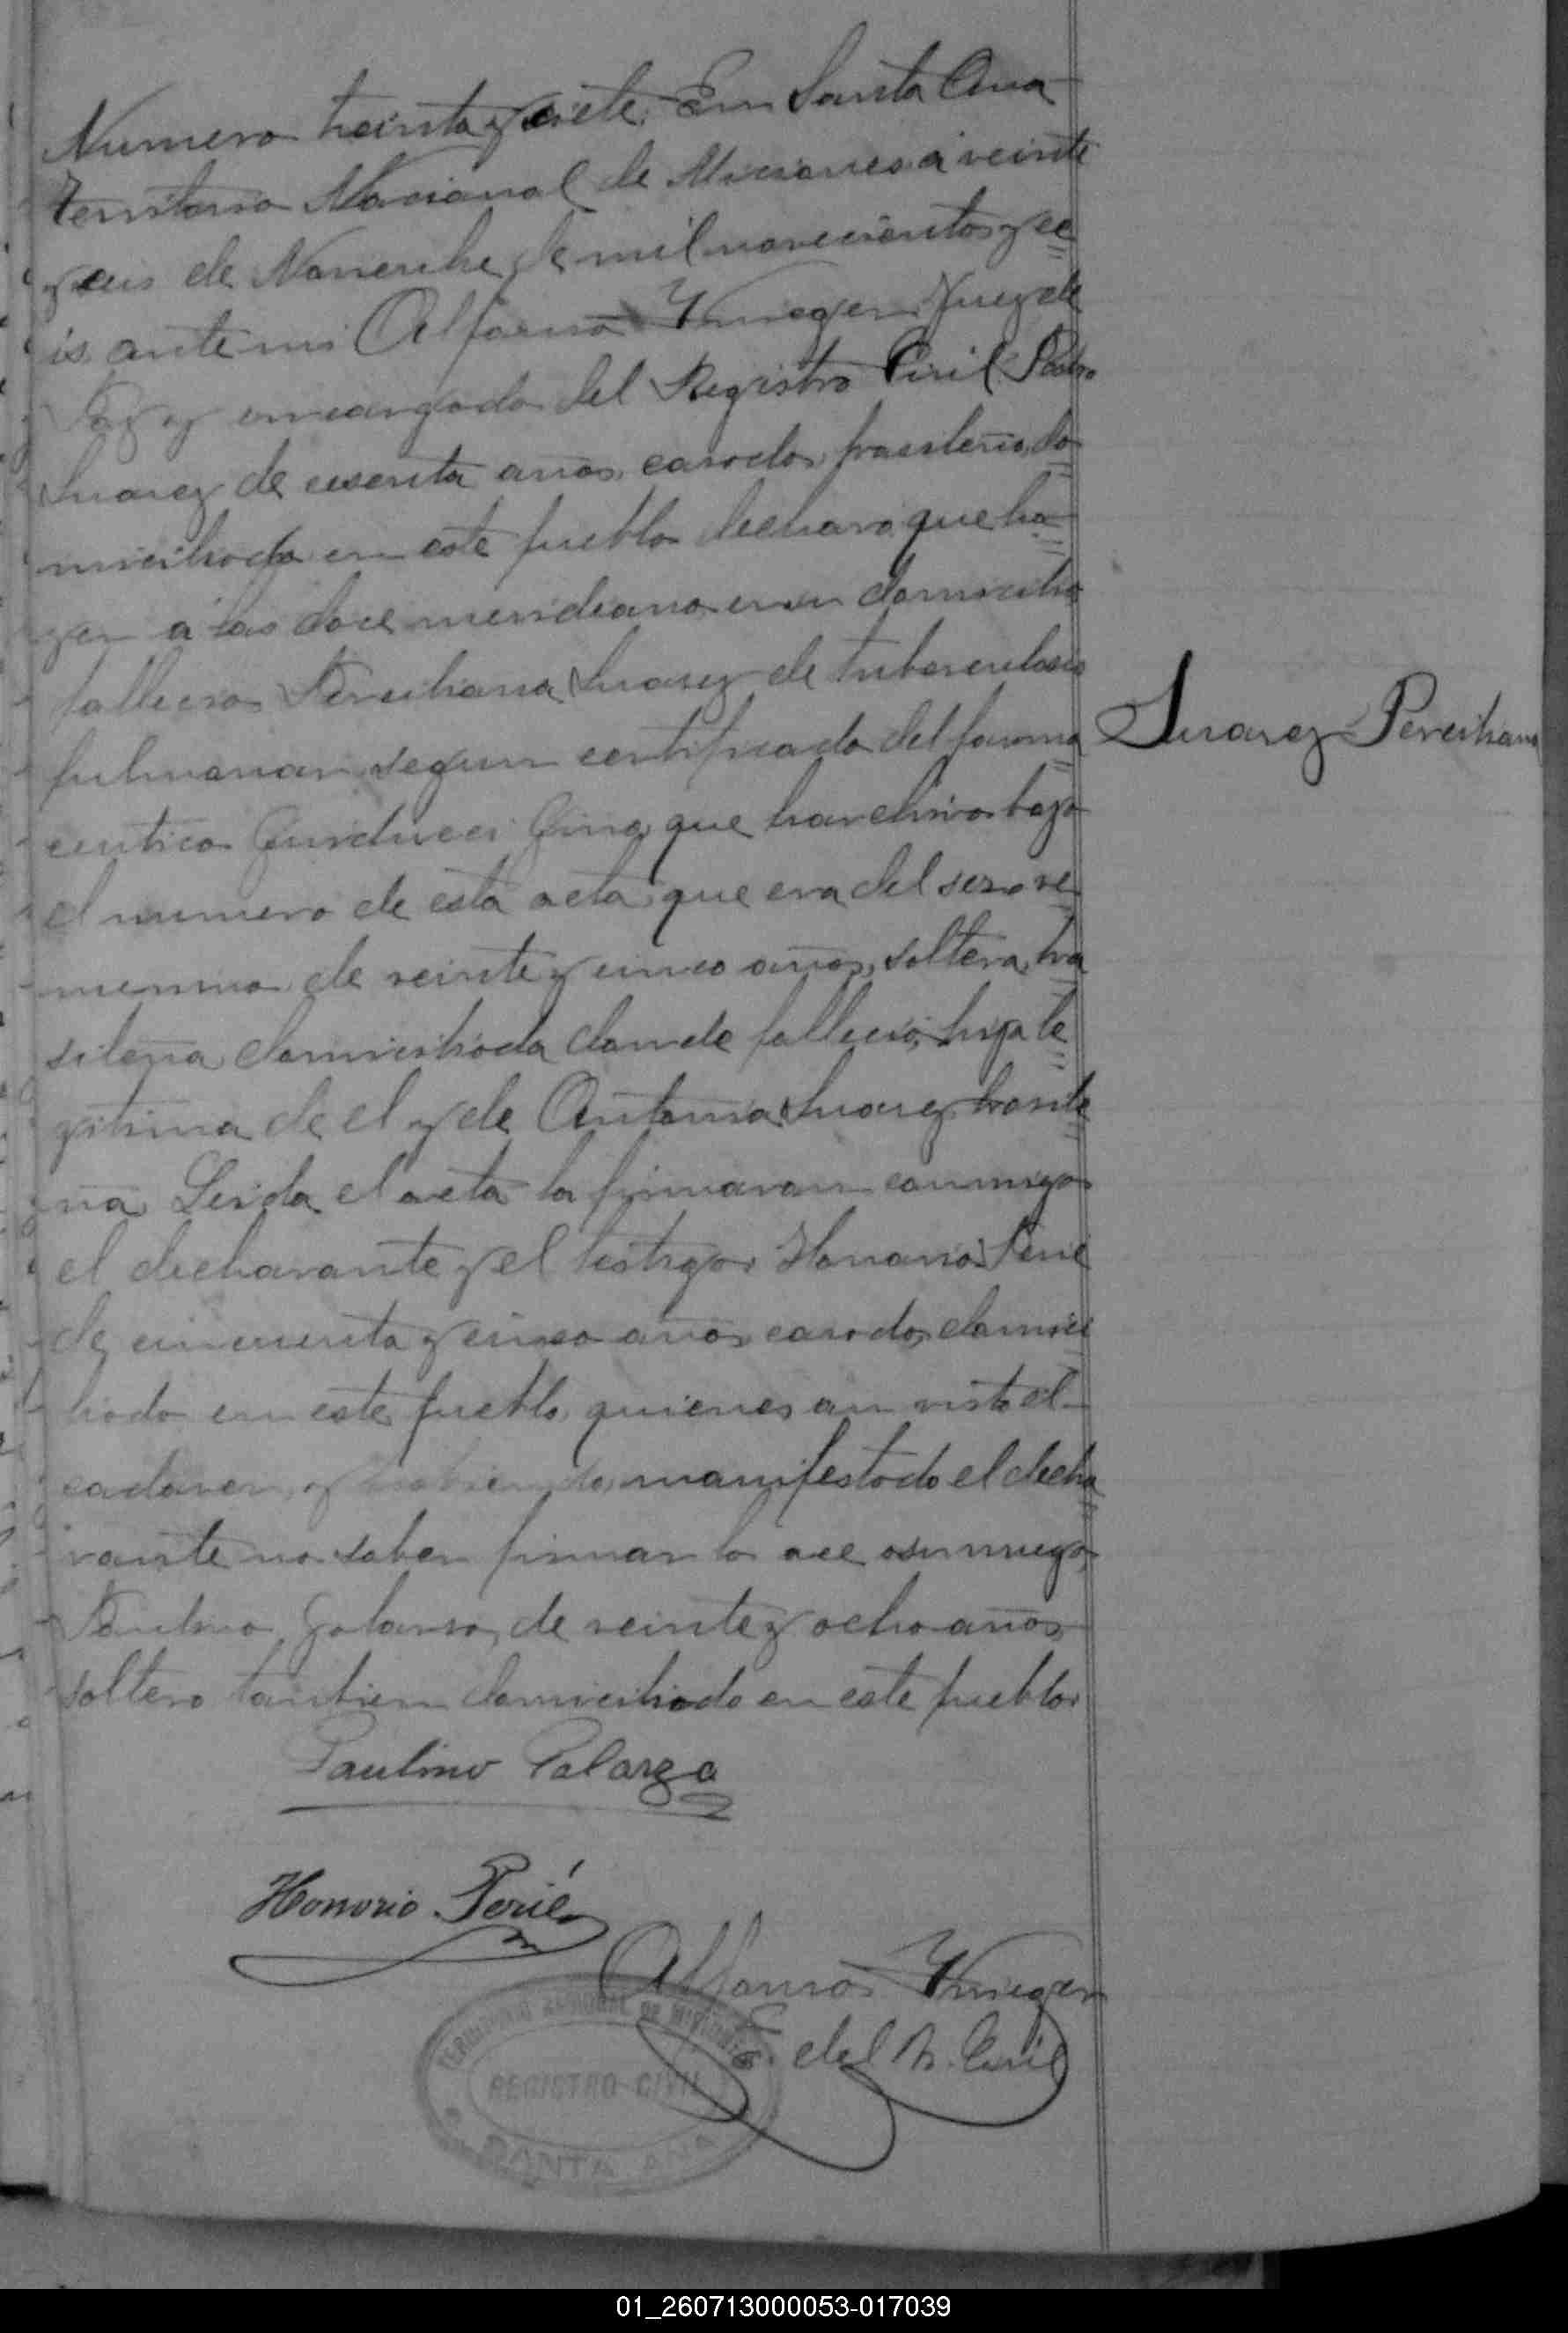 Numero treinta y siete. En Santa Ana
Territorio Nacional de Misiones a veinte
y seis de Noviembre de mil novecientos y se
is ante mi Alfonso Krieger Juez de
Paz y encargado del Registro Civil Pedro
Suarez de sesenta años, casado, brasilero, do
miciliado en este pueblo declaro que ha
yer a las doce meridiano en su domicilio
fallecio Perciliana Suarez de tuberculosis
pulmonar segun certificado del farma
ceutico Gino que harchivo bajo
el numero de esta acta, que era del sexo fe
menino de veinte y cinco años, soltera, bra
sileña domiciliada donde fallecio, hija le
gitima de el y de Antonia Suarez brasile
ña Leida el acta la firmaron conmigo
el declarante y el testigo Honorio Perié
de cincuenta y cinco años casado, domici
liado en este pueblo, quienes an visto el
cadaver, y habiendo manifestado el decla
rante no saber firmar lo ace a su ruego,
Paulino Galarza, de veinte y ocho años
soltero tambien domiciliado en este pueblo
Suarez Perciliana
Paulino Galarza
Honorio Perié
Alfonso Krieger
E. del R. Civil
TERRITORIO NACIONAL DE MISIONES
REGISTRO CIVIL
SANTA ANA
01_260713000053-017039